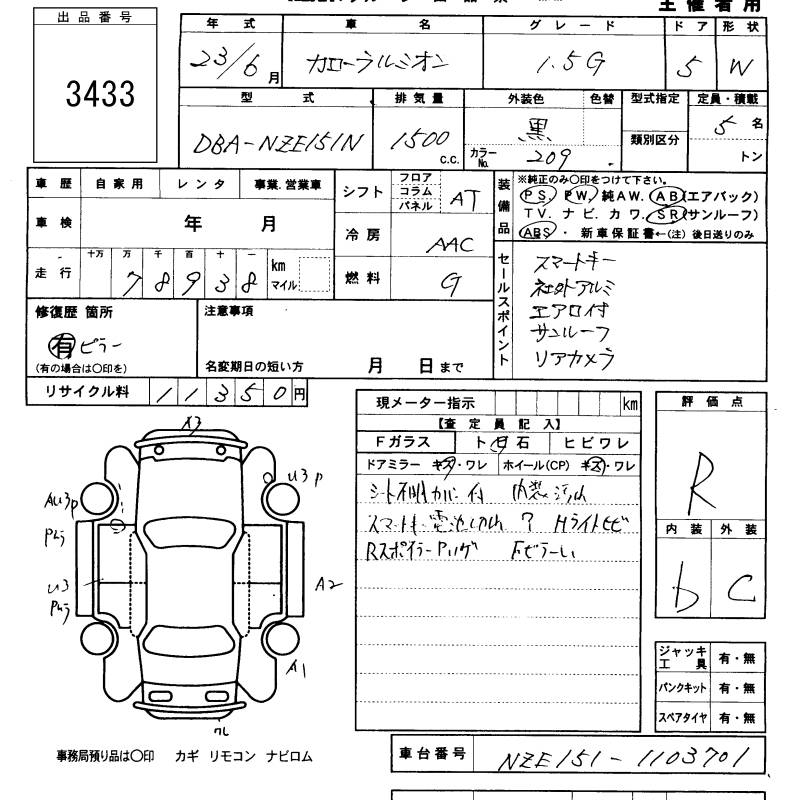 主催者用
出品番号
3433
年式 車名 グレード ドア 形状
23/6月 カローラルミオン 1.5G 5 W
型式 排気量 外装色 色替 型式指定 定員・積載
DBA-NZE151N 1500 c.c. 黒 類別区分 5名
カラーNo. 209 トン
車歴 自家用 レンタ 事業.営業車
車検 年 月
走行 十万 万 千 百 十 一 km マイル
78938
シフト フロア コラム パネル AT
冷房 AAC
燃料 G
装備品
※純正のみ〇印をつけて下さい。
PS. PW. 純AW. AB(エアバック)
TV. ナビ. カワ. SR(サンルーフ)
ABS ・ 新車保証書←(注) 後日送りのみ
セールスポイント
スマートキー
社外アルミ
エアロ付
サンルーフ
リアカメラ
修復歴 箇所
有 ピラー
(有の場合は〇印を)
注意事項
名変期日の短い方 月 日まで
リサイクル料 11350円
現メーター指示 km
【査定員記入】
Fガラス ト石 ヒビワレ
ドアミラー キズ・ワレ ホイール(CP) キズ・ワレ
付 内装
スマートキー電池切れ ? Hライトヒビ
Rスポイラー
評価点
R
内装 外装
b C
ジャッキ工具 有・無
パンクキット 有・無
スペアタイヤ 有・無
X3
U3 P
AU3P
U3
A2
A1
事務局預り品は〇印 カギ リモコン ナビロム
車台番号 NZE151-1103701